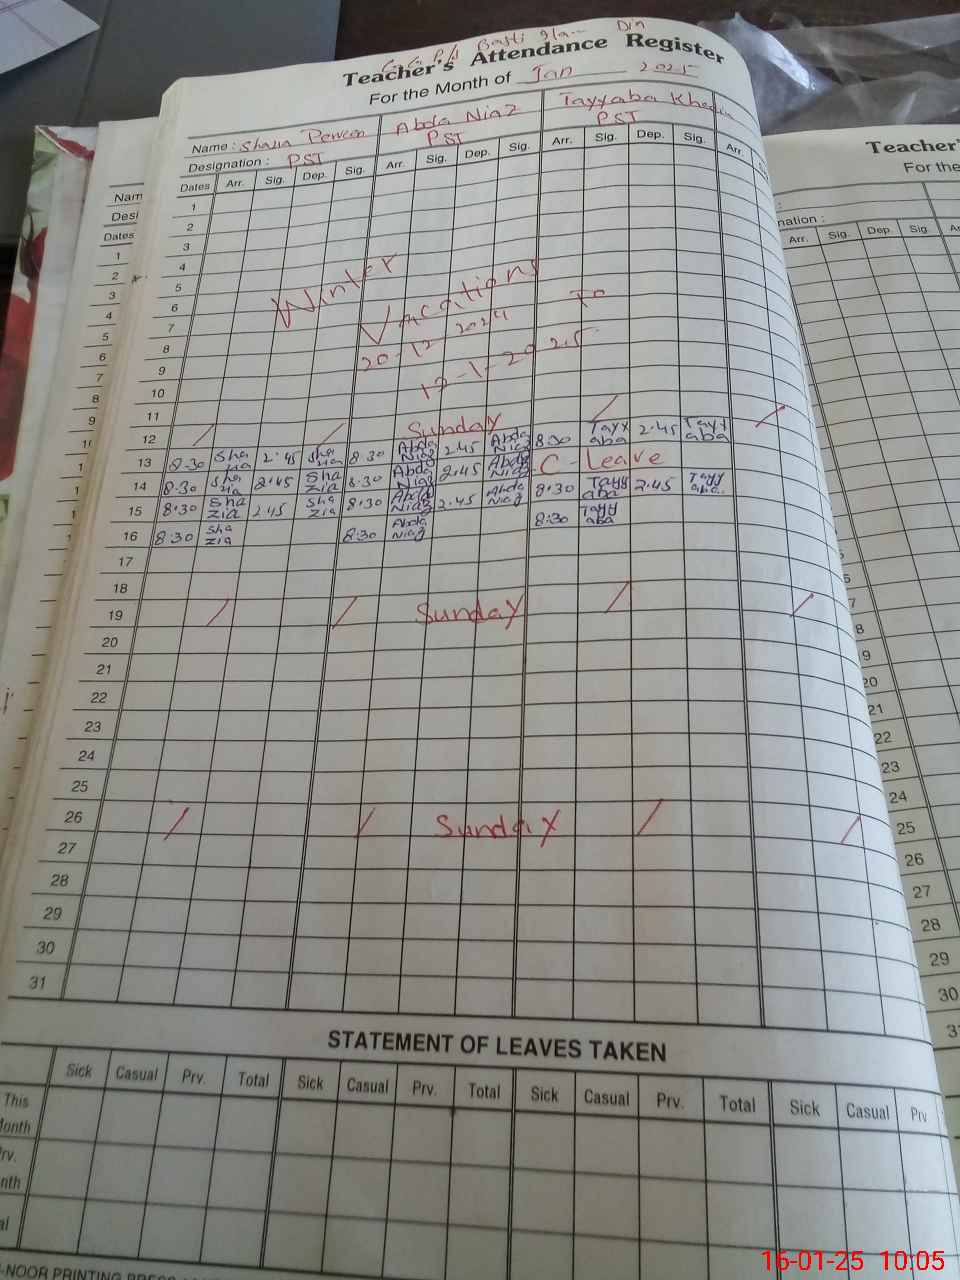 G.G.P/S Basti Glam Din
Teacher's Attendance Register
For the Month of Jan 2025
Name : Shazia Perveen Abda Niaz Tayyaba Khadim
Designation : PST PST PST
Dates Arr. Sig. Dep. Sig. Arr. Sig. Dep. Sig. Arr. Sig. Dep. Sig. Arr.
1
2
3
4
5
6
7
8
9
10
11
Winter
Vacations
20-12-2024 To
12-1-2025
12 Sunday
13 8:30 Shazia 2:45 Shazia 8:30 Abda Niaz 2.45 Abda Niaz 8:30 Tayyaba 2.45 Tayyaba
14 8.30 Shazia 2.45 Shazia 8.30 Abda Niaz 2.45 Abda Niaz C - Leave
15 8.30 Shazia 2.45 Shazia 8.30 Abda Niaz 2.45 Abda Niaz 8:30 Tayyaba 2.45 Tayyaba
16 8:30 Shazia 8:30 Abda Niaz 8:30 Tayyaba
17
18
19 Sunday
20
21
22
23
24
25
26 Sunday
27
28
29
30
31
STATEMENT OF LEAVES TAKEN
Sick Casual Prv. Total Sick Casual Prv. Total Sick Casual Prv. Total Sick Casual Prv
This
Month
Prv.
-NOOR PRINTING PRESS
Nam
Desi
Dates
1
2
3
4
5
6
7
8
9
Teacher'
For the
nation :
Arr. Sig. Dep. Sig.
20
21
22
23
24
25
26
27
28
29
30
16-01-25 10:05